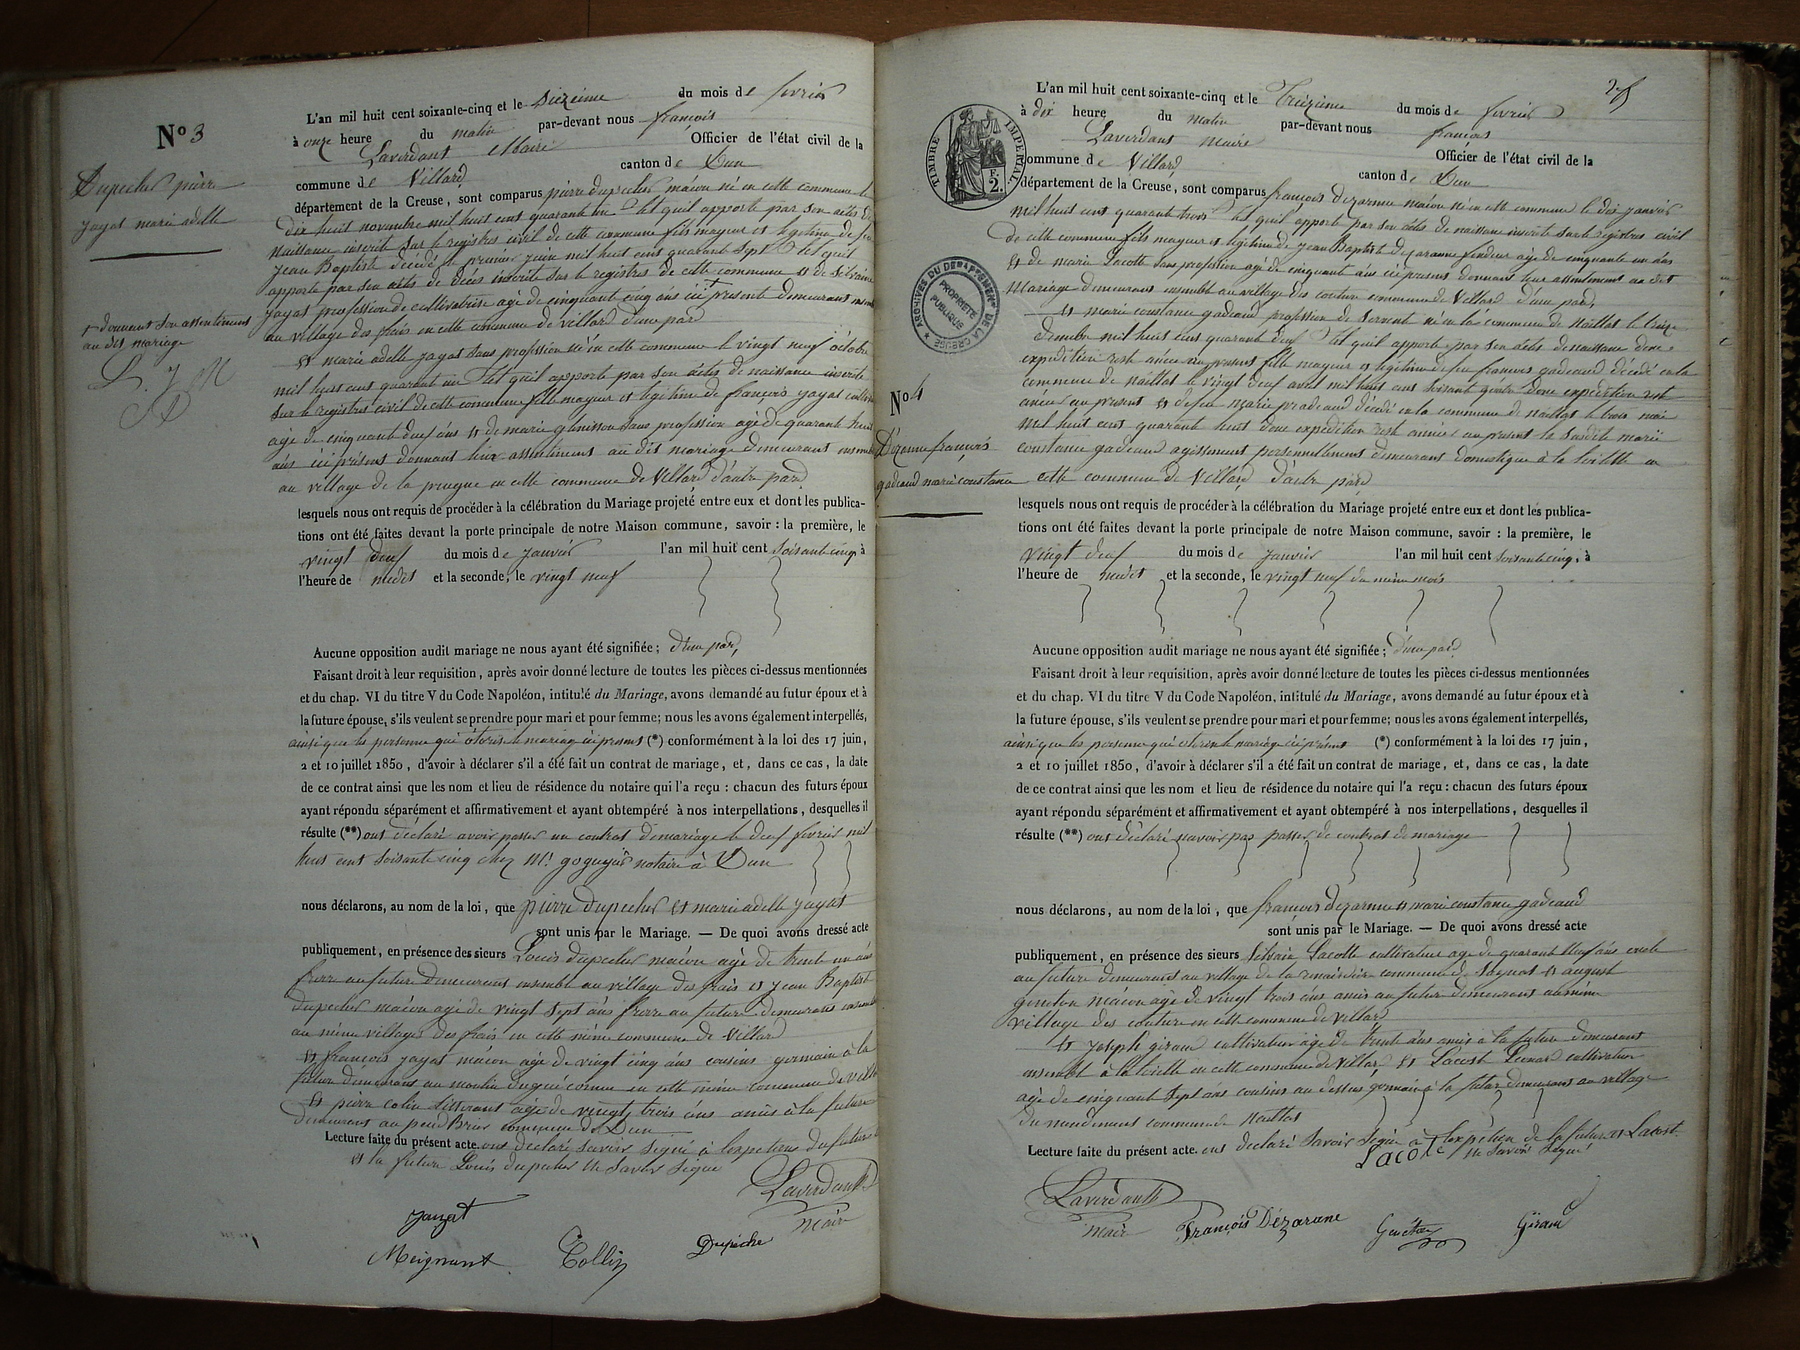 N° 3
Dupecher pierre
jayat marie adelle
et donnant son assentiment
au dit mariage
L'an mil huit cent soixante-cinq et le dixzeime du mois de fevrier
à onze heure du matin par-devant nous françois
Laverdant Maire Officier de l'état civil de la
commune de Villard canton de Dun
département de la Creuse, sont comparus pierre dupecher macon né en cette commune le
dix huit novembre mil huit cent quarante un tel quil apporte par son actes de
naissance inscrite sur le registres civil de cette commune fils mageur et legitime de feu
jean Baptiste décédé le premier juin mil huit cent quarant sept tel quil
apporte par son actes de décés inscrite sur le registres de cette commune et de Silvaine
jayat profession de cultivatrice agé de cinquante cinq ans ici presente demeurant ensem
au village des frais en cette commune de villard d'une pard
et marie adelle jayat sans profession né en cette commune le vingt neuf octobre
mil huit cent quarant un tel quil apporte par son actes de naissance inscrite
sur le registres civil de cette commune fille mageur et legitime de françois jayat
agé de cinquante deux ans et de marie sans profession agé de quarante huit
ans ici présent donnant leur assentiment au dit mariage demeurant ensem
au village de la prugne en cette commune de Villard d'autre pard
lesquels nous ont requis de procéder à la célébration du Mariage projeté entre eux et dont les publica-
tions ont été faites devant la porte principale de notre Maison commune, savoir : la première, le
vingt deux du mois de janvier l'an mil huit cent soisante cinq, à
l'heure de medit et la seconde, le vingt neuf
Aucune opposition audit mariage ne nous ayant été signifiée; d'une pard,
Faisant droit à leur requisition, après avoir donné lecture de toutes les pièces ci-dessus mentionnées
et du chap. VI du titre V du Code Napoléon, intitulé du Mariage, avons demandé au futur époux et à
la future épouse, s'ils veulent se prendre pour mari et pour femme; nous les avons également interpellés,
ainsi que les personne qui otoris le mariage ici présent (*) conformément à la loi des 17 juin,
2 et 10 juillet 1850, d'avoir à déclarer s'il a été fait un contrat de mariage, et, dans ce cas, la date
de ce contrat ainsi que les nom et lieu de résidence du notaire qui l'a reçu : chacun des futurs époux
ayant répondu séparément et affirmativement et ayant obtempéré à nos interpellations, desquelles il
résulte (**) ont déclaré avoir passer un contrat de mariage le deux fevrier mil
huit cent soisante cinq chez notaire à Dun
nous déclarons, au nom de la loi, que pierre dupecher et marie adelle jayat
sont unis par le Mariage. — De quoi avons dressé acte
publiquement, en présence des sieurs Louis dupecher macon agé de trente un ans
frere au future demeurant ensemble au village des frais et jean Baptist
dupecher macon agé de vingt sept ans frere au future demeurans ensemble
au même village des frais en cette même commune de Villard
et françois jayat macon agé de vingt cinq ans cousins germain à la
future demeurans au moulin en cette même commune de
et pierre colin agé de vingt trois ans amis à la future
demeurans au commune de Dun
Lecture faite du présent acte. ont declaré savoir signé à lexpetions du future
et la future Louis dupecher ne savoir signé
Laverdantt
maire
Jayat
Meignant
Collin
Dupéche
25
TIMBRE IMPERIAL
F.
2.
ARCHIVES DU DÉPARTEMENT DE LA CREUSE
PROPRIÉTÉ PUBLIQUE
N° 4
Dézarme francois
gadeaud marie constance
L'an mil huit cent soixante-cinq et le Treizime du mois de fevrier
à dix heure du matin par-devant nous françois
Laverdant maire Officier de l'état civil de la
commune de Villard canton de Dun
département de la Creuse, sont comparus françois dezarme macon né en cette commune le dix janvier
mil huit cent quarante trois tel quil apporte par son actes de naissance inscrite sur le registres civil
de cette commune fils mageur et legitime de jean Baptist dezarme agé de cinquante un ans
et de marie Lacotte sans profession agé de cinquant ans ici présens donnant leur assentiment au dit
mariage demeurans ensemble au village des couture commune de Villard d'une pard,
et marie constance gadeaud profession de servent né en la commune de Naillat le
mil huit cent quarant deux tel quil apporte par son actes de naissance dont
expedition rest anéxé au présent fille mageur et legitime de feu francois gadeaud décédé en la
commune de naillat le vingt deux avril mil huit cent soisant quatre dont expedition rest
anéxé au present et de feu marie pradeaud décédé en la commune de naillat le trois mai
mil huit cent quarante huit dont expedition rest au present la susdite marie
constance gadeaud agissement personnellement demeurans domestique à la en
cette commune de Villard d'autre pard
lesquels nous ont requis de procéder à la célébration du Mariage projeté entre eux et dont les publica-
tions ont été faites devant la porte principale de notre Maison commune, savoir : la première, le
vingt deux du mois de janvier l'an mil huit cent soisante cinq, à
l'heure de medit et la seconde, le vingt neuf du même mois
Aucune opposition audit mariage ne nous ayant été signifiée; d'une pard
Faisant droit à leur requisition, après avoir donné lecture de toutes les pièces ci-dessus mentionnées
et du chap. VI du titre V du Code Napoléon, intitulé du Mariage, avons demandé au futur époux et à
la future épouse, s'ils veulent se prendre pour mari et pour femme; nous les avons également interpellés,
ainsi que les personne qui otoris le mariage ici présent (*) conformément à la loi des 17 juin,
2 et 10 juillet 1850, d'avoir à déclarer s'il a été fait un contrat de mariage, et, dans ce cas, la date
de ce contrat ainsi que les nom et lieu de résidence du notaire qui l'a reçu : chacun des futurs époux
ayant répondu séparément et affirmativement et ayant obtempéré à nos interpellations, desquelles il
résulte (**) ont déclaré navoir pas passer de contrat de mariage
nous déclarons, au nom de la loi, que francois dezarme et marie constance gadeaud
sont unis par le Mariage. — De quoi avons dressé acte
publiquement, en présence des sieurs Silvain Lacotte cultivateur agé de quarant neuf ans oncle
au future demeurans au village de la commune de Sagnat et august
macon agé de vingt trois ans amis au futur demeurans au même
village des couture en cette commune de villard
et joseph giraud cultivateur agé de trente ans amis à la future demeurant
ensemble à la en cette commune de Villard et Lacost Leonard cultivateur
agé de cinquant sept ans cousins au dessus germain à la futur demeurans au village
du commune de Naillat
Lecture faite du présent acte. ont declaré savoir signé à lexpetion de la future et Lacost
ne savoir signé
Lacote
Laverdantt
maire
François Dézarme
Giraud